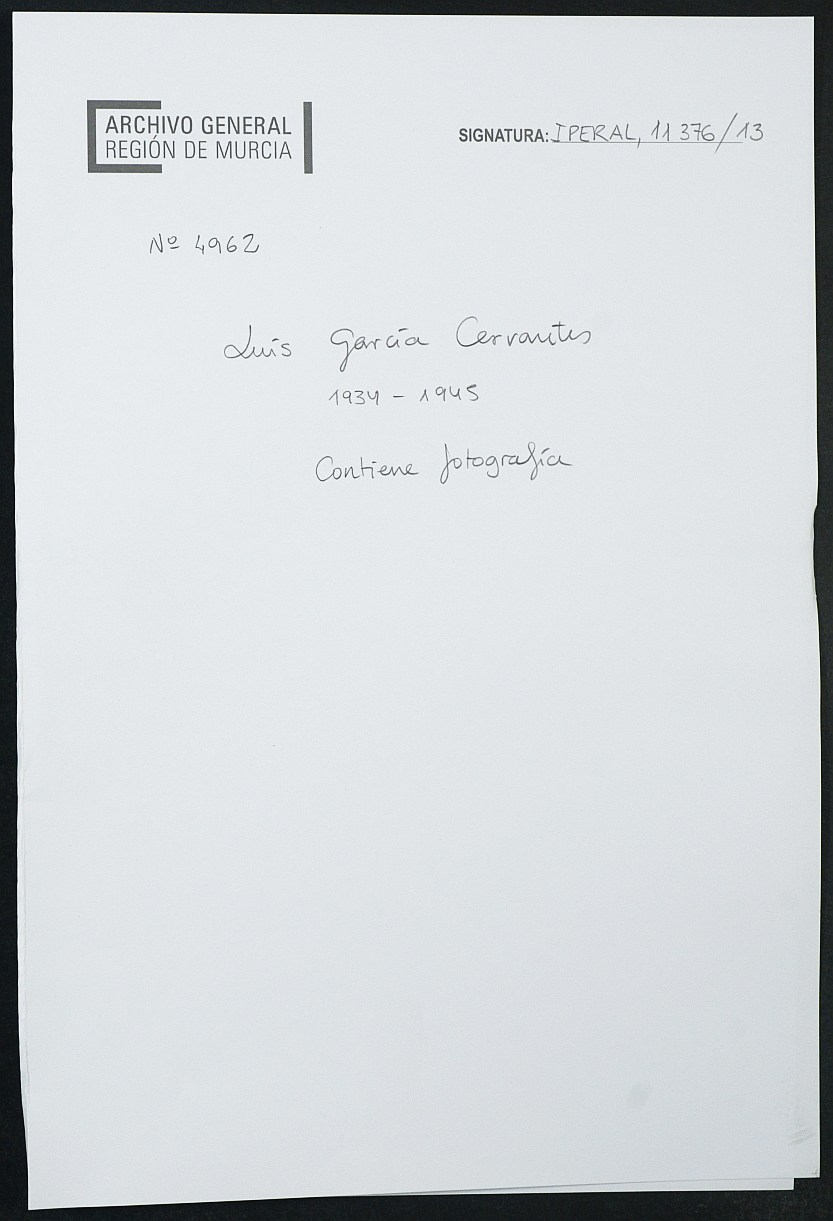 ARCHIVO GENERAL
REGIÓN DE MURCIA
SIGNATURA: IPERAL, 11 376/13
Nº 4962
Luis García Cervantes
1934 - 1945
Contiene fotografía